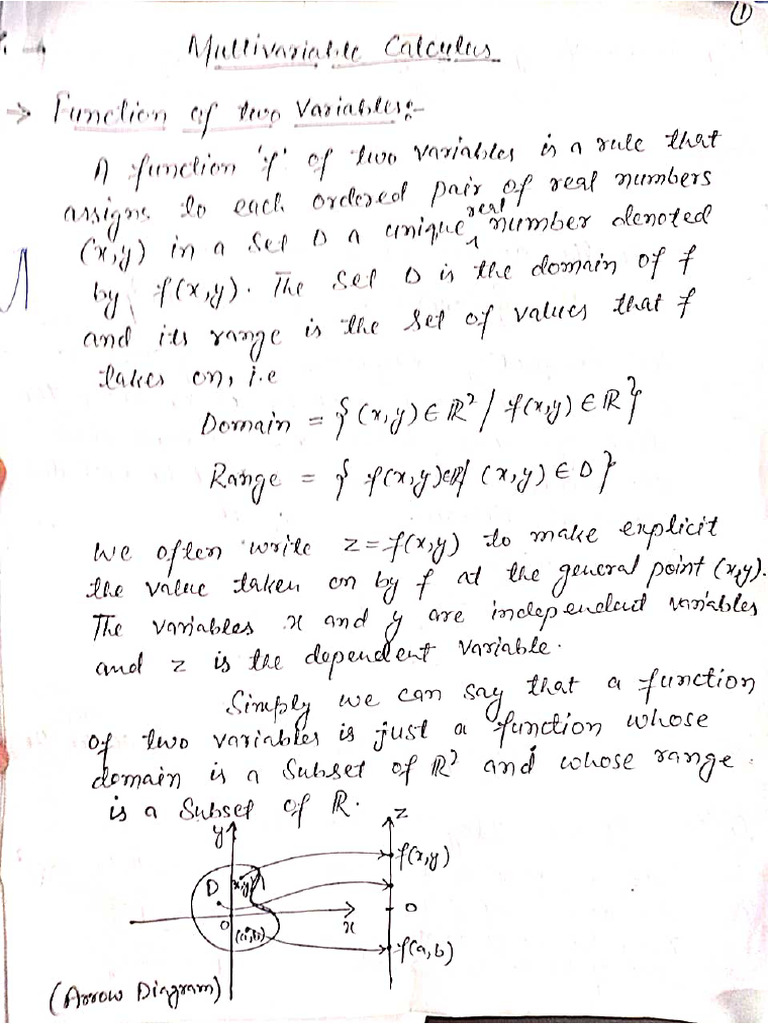 1
Multivariable Calculus
→ Function of two Variables:-
A function 'f' of two variables is a rule that
assigns to each ordered pair of real numbers
(x,y) in a set D a unique real number denoted
by f(x,y). The set D is the domain of f
and its range is the set of values that f
takes on, i.e
Domain = {(x,y) ∈ ℝ² / f(x,y) ∈ ℝ}
Range = { f(x,y)∈ℝ/ (x,y) ∈ D}
We often write z=f(x,y) to make explicit
the value taken on by f at the general point (x,y).
The variables x and y are independent variables
and z is the dependent variable.
Simply we can say that a function
of two variables is just a function whose
domain is a subset of ℝ² and whose range
is a subset of ℝ.
y z
f(x,y)
D (x,y)
0
0 x
(a,b)
f(a,b)
(Arrow Diagram)